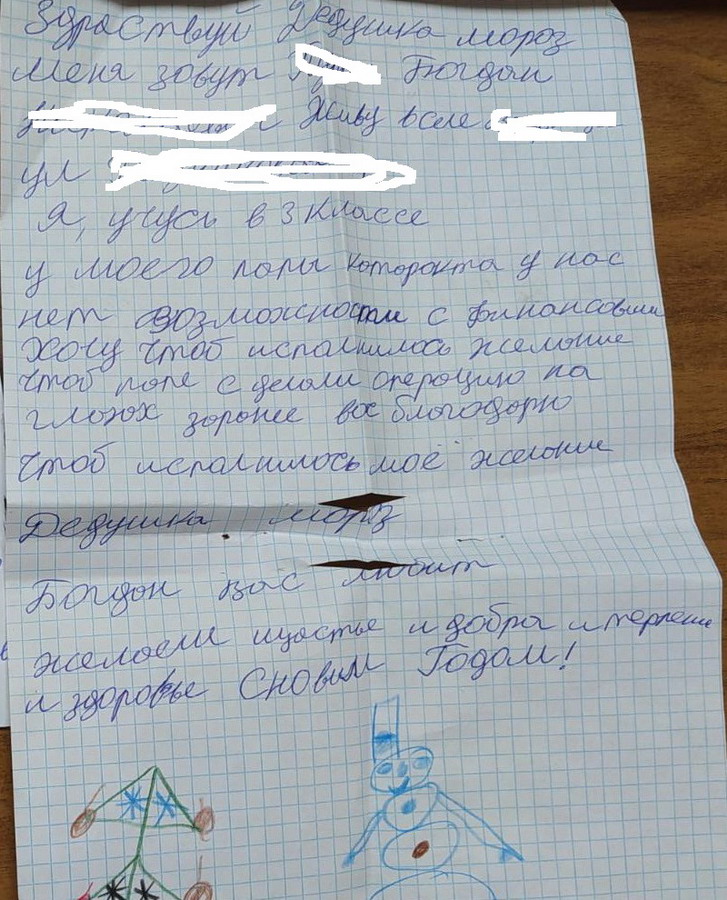 Здраствуй Дедушка мороз
Меня зовут Богдан
Живу в селе
ул
Я, учусь в 3 классе
у моего папы каторакта у нас
нет возможности с финансовыми
Хочу чтоб испалнилось желание
чтоб папе с делали операцию на
глазах заранее вас благодарю
Чтоб испалнилось моё желание
Дедушка мороз
Богдан вас любит
желаем щастье и добра и терпени
и здоровье С новым Годом!